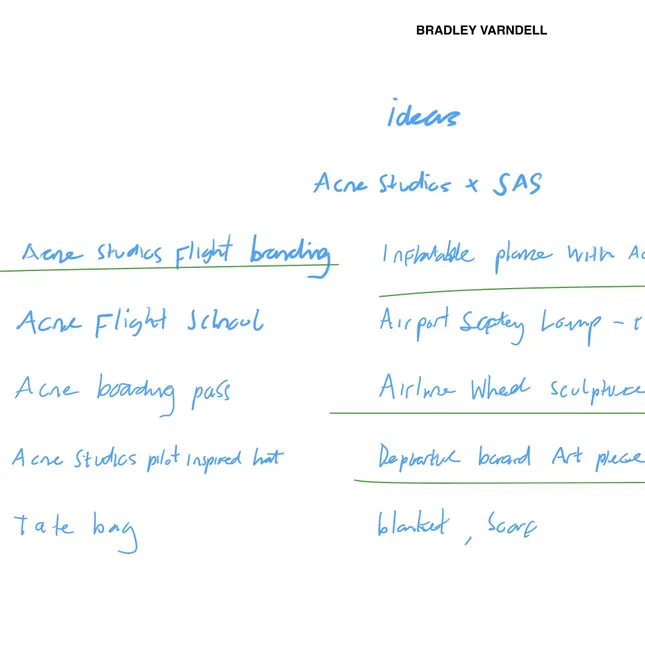 BRADLEY VARNDELL
ideas
Acne Studios x SAS
Acne Studios Flight branding
Acne Flight School
Acne boarding pass
Acne Studios pilot inspired hat
Tate bag
Inflatable plane with Ac
Airport Lamp -
Airline Wheel sculpture
board Art piece
blanket, Scarf